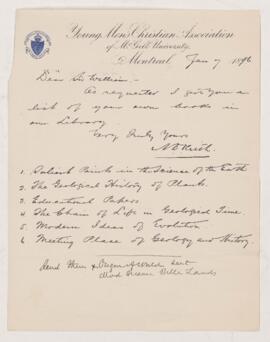 Young Men's Christian Association
of McGill University.
Montreal, Jan 7 1896
Dear Sir William:-
As requested I give you a
list of your own books in
our Library.
Very Truly Yours
1. Salient Points in the Science of the Earth
2. The Geological History of Plants.
3. Educational Papers
4. The Chain of Life in Geological Time.
5. Modern Ideas of Evolution.
6. Meeting Place of Geology and History.
Send them & Origin of World sent
Mod Science Bible Lands